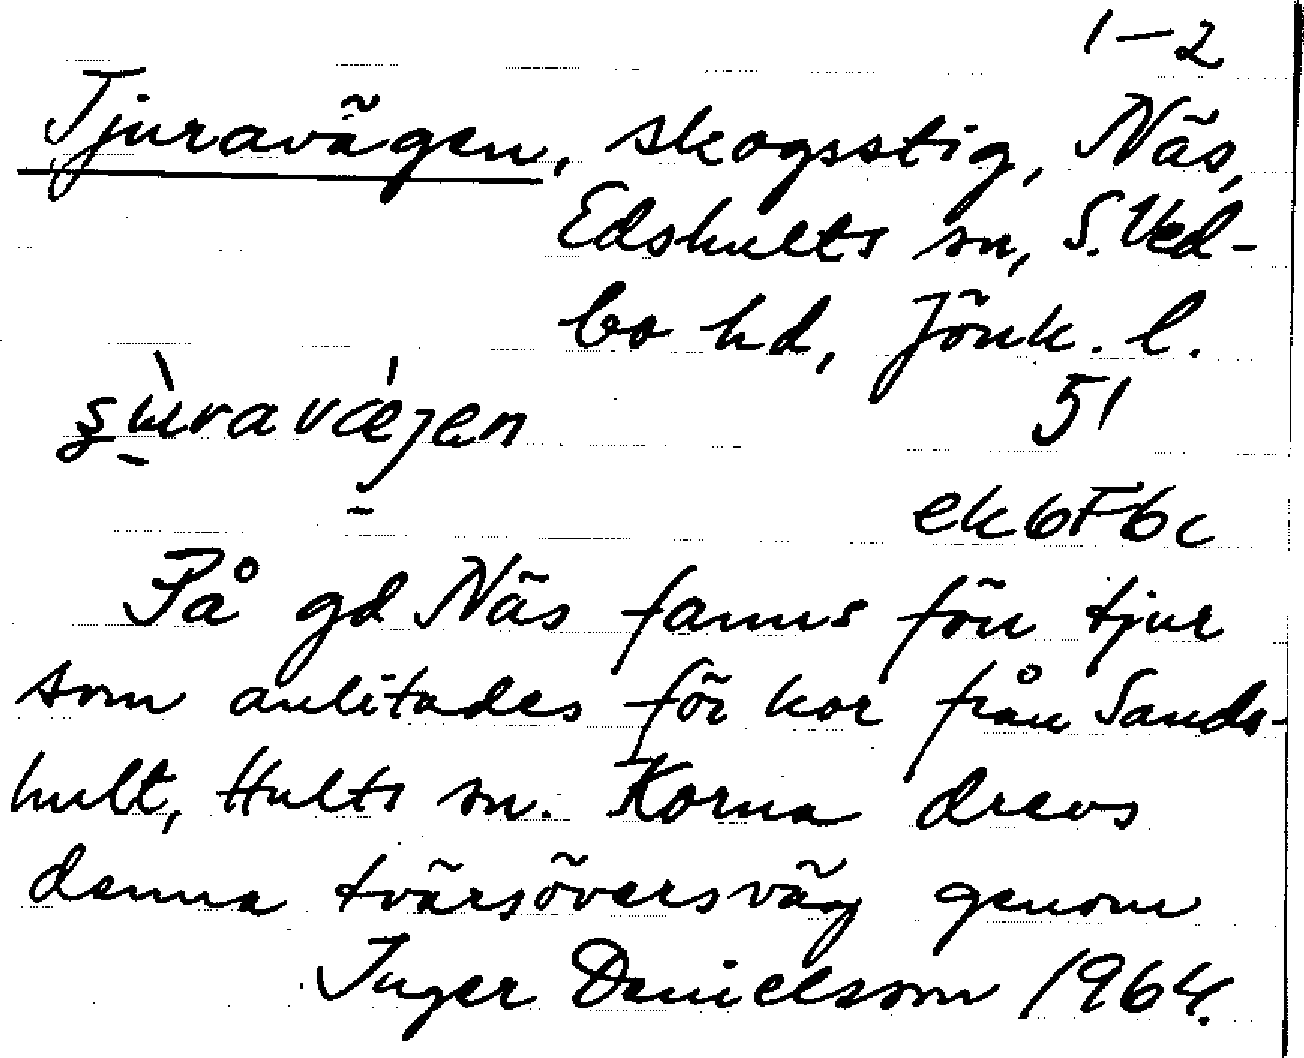 1–2
Tjuravägen, skogsstig, Näs,
Edshults sn, S. Ved-
bo hd, Jönk. l.
51
ek 6F6c
På gd Näs fanns förr tjur
som anlitades för kor från Sands-
hult, Hults sn. Korna drevs
denna tvärsöversväg genom
Inger Danielsson 1964.